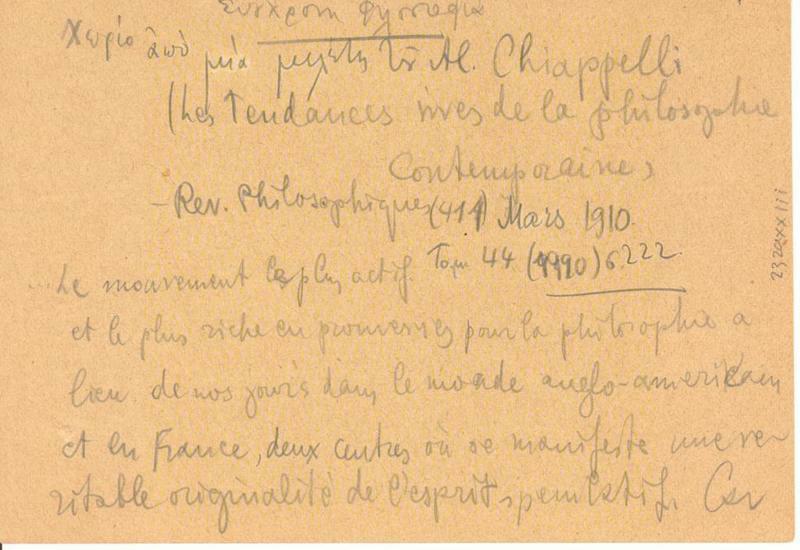 Σύγχρονη φιλοσοφία
Χωρίο ἀπὸ μιὰ μελέτη τοῦ Al. Chiappelli
(Les Tendances vives de la philosophie
Contemporaine,
- Rev. Philosophique, (411) Mars 1910.
Le mouvement le plus actif. Τομ 44 (1910) σ. 222.
et le plus riche en promesses pour la philosophie a
lieu de nos jours dans le monde anglo-américain
et en France, deux centres où se manifeste une ve-
ritable originalité de l'esprit spéculatif. Car